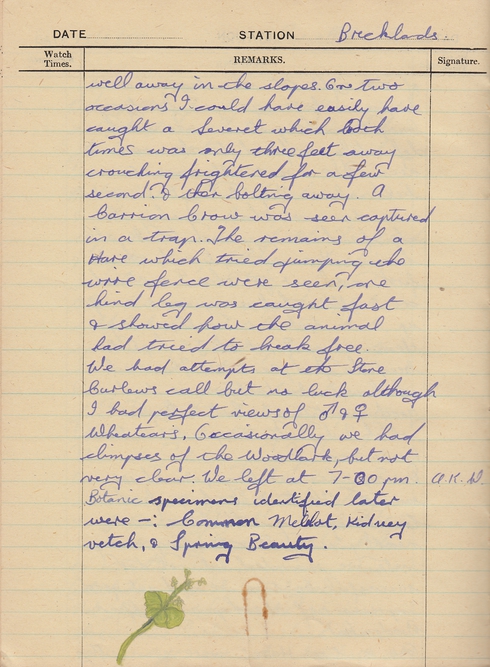 DATE STATION Brecklands.
Watch Times. REMARKS. Signature.
well away in the slopes. On two
occasions I could have easily have
caught a leveret which both
times was only three feet away
crouching frightened for a few
second. & then bolting away. A
Carrion Crow was seen captured
in a trap. The remains of a
Hare which tried jumping the
wire fence were seen, one
hind leg was caught fast
& showed how the animal
had tried to break free.
We had attempts at the Stone
Curlews call but no luck although
I had perfect views of ♂ & ♀
Wheatears, Occasionally we had
glimpses of the Woodlark, but not
very clear. We left at 7-00 pm.
Botanic specimens identified later
were -: Common Melilot, Kidney
vetch, & Spring Beauty.